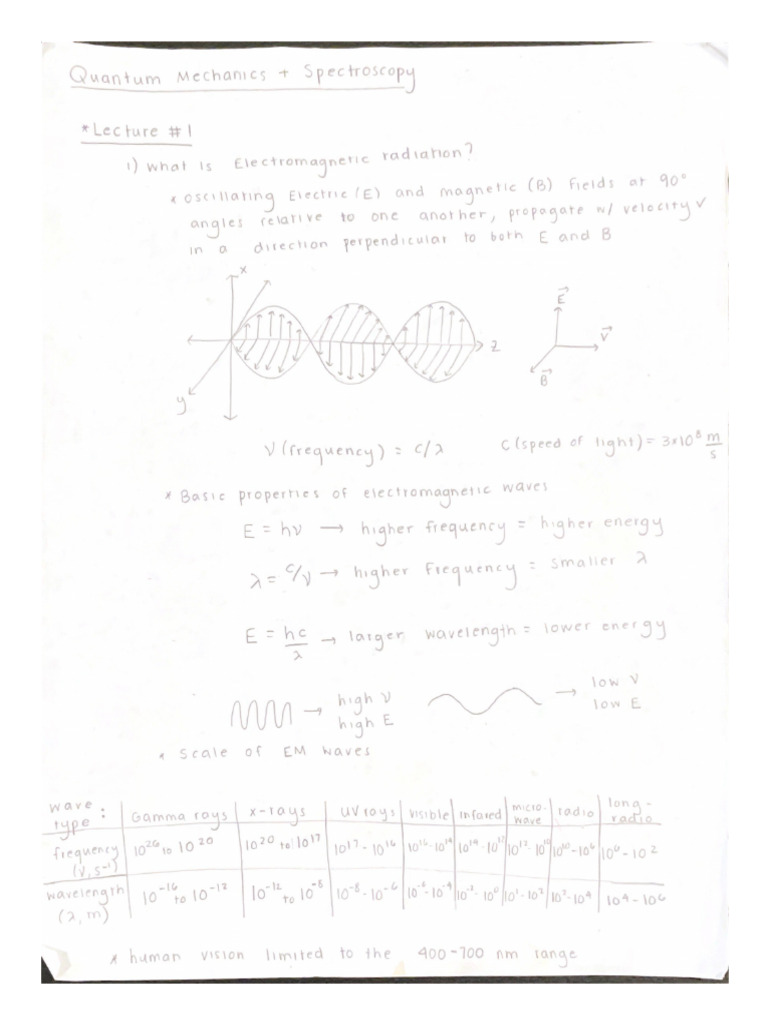 Quantum Mechanics + Spectroscopy
* Lecture #1
1) What is Electromagnetic radiation?
* oscillating Electric (E) and magnetic (B) fields at 90°
angles relative to one another, propagate w/ velocity v
in a direction perpendicular to both E and B
x
E
z
V
B
y
ν (frequency) = c/λ C (speed of light) = 3x10⁸ m/s
* Basic properties of electromagnetic waves
E = hν → higher frequency = higher energy
λ = c/ν → higher frequency = smaller λ
E = hc/λ → larger wavelength = lower energy
→ high ν → low ν
high E low E
* Scale of EM waves
wave type : Gamma rays X-rays UV rays visible infared micro-wave radio long-radio
frequency (ν, s⁻¹) to 10²⁰ 10²⁰ to 10¹⁷ 10¹⁷ - 10¹⁶ 10⁶ - 10²
wavelength (λ, m) 10⁻¹⁶ to 10⁻¹² 10⁻¹² to 10⁻⁸ 10⁻⁸ - 10⁻⁶ 10¹ - 10² 10² - 10⁴ 10⁴ - 10⁶
* human vision limited to the 400-700 nm range